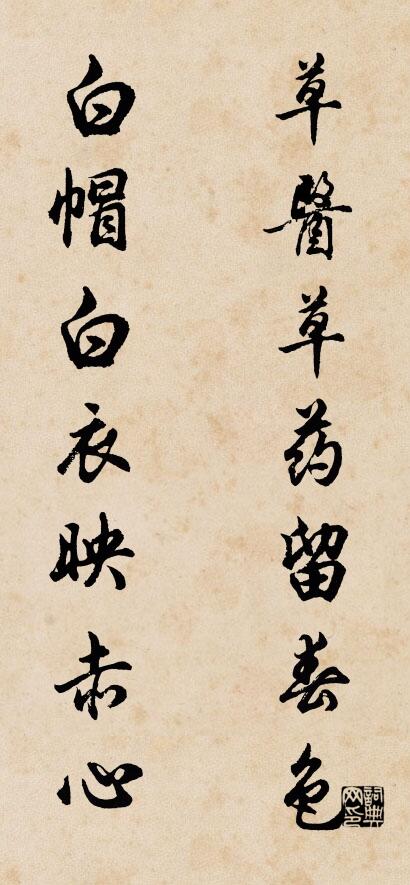 草醫草药留春色
白帽白衣映赤心
詞典網印